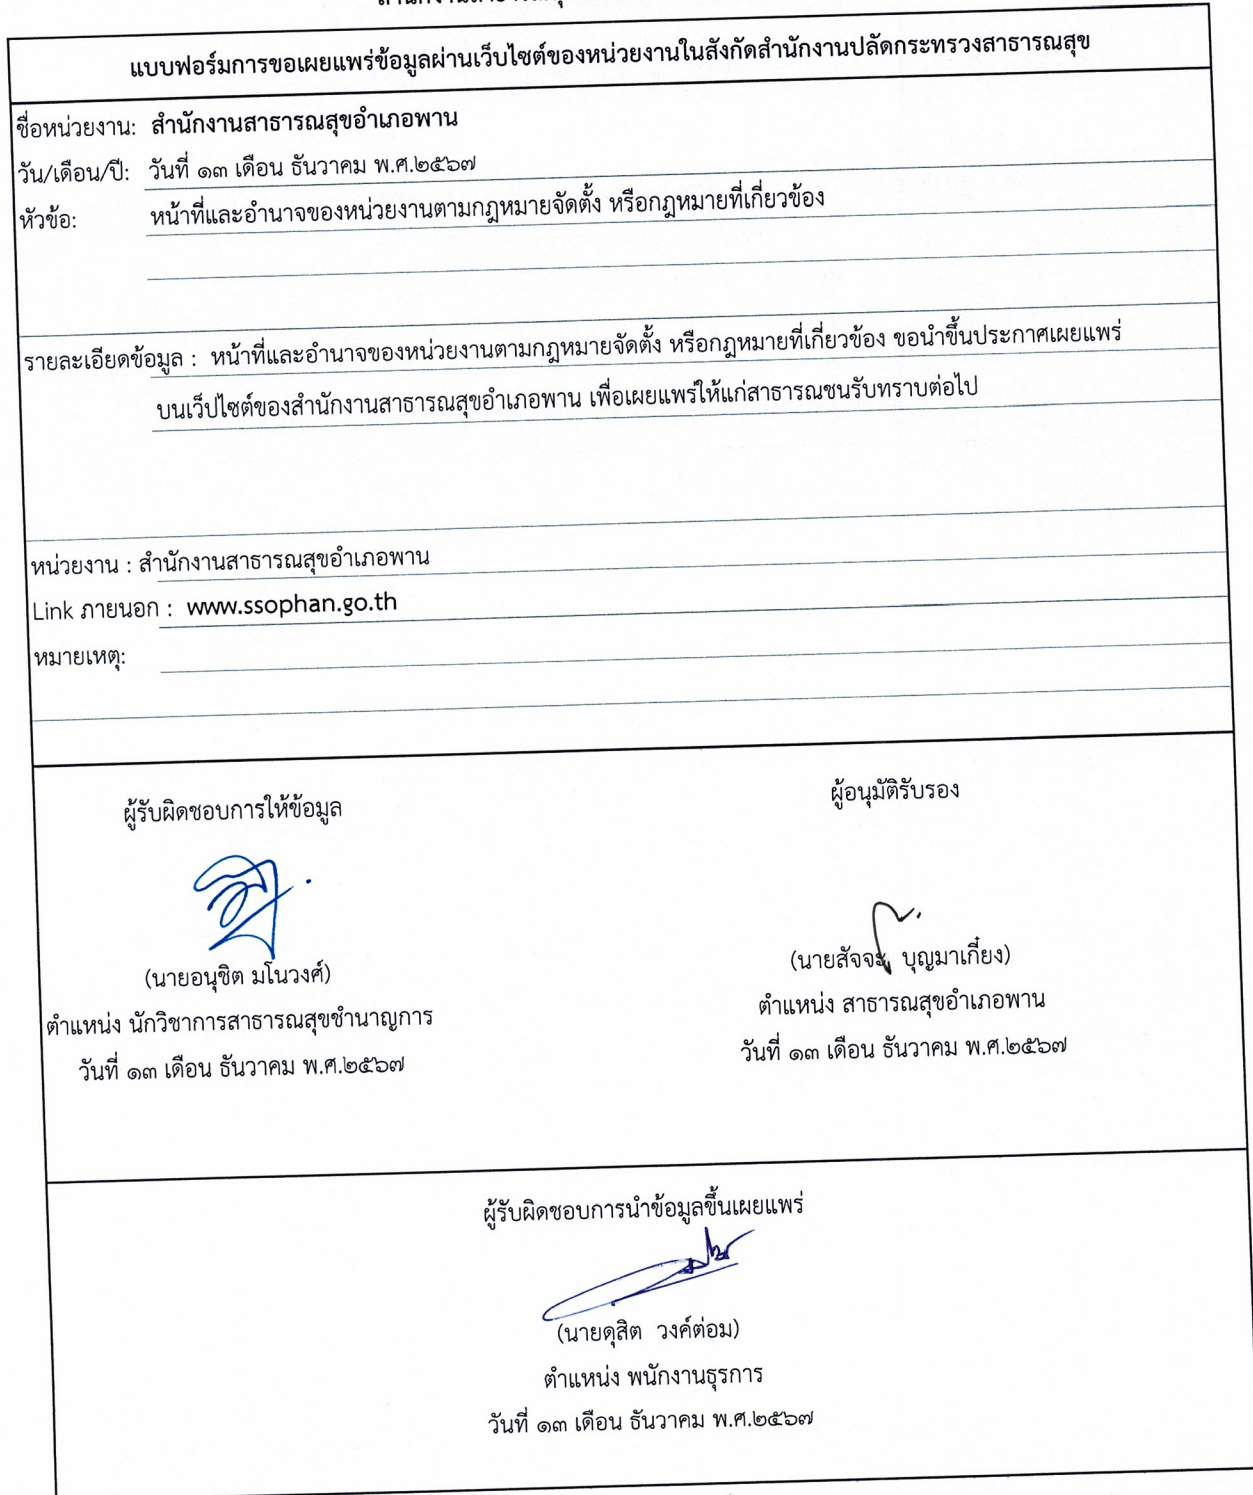 แบบฟอร์มการขอเผยแพร่ข้อมูลผ่านเว็บไซต์ของหน่วยงานในสังกัดสำนักงานปลัดกระทรวงสาธารณสุข
ชื่อหน่วยงาน: สำนักงานสาธารณสุขอำเภอพาน
วัน/เดือน/ปี: วันที่ ๑๓ เดือน ธันวาคม พ.ศ.๒๕๖๗
หัวข้อ: หน้าที่และอำนาจของหน่วยงานตามกฎหมายจัดตั้ง หรือกฎหมายที่เกี่ยวข้อง
รายละเอียดข้อมูล : หน้าที่และอำนาจของหน่วยงานตามกฎหมายจัดตั้ง หรือกฎหมายที่เกี่ยวข้อง ขอนำขึ้นประกาศเผยแพร่
บนเว็ปไซต์ของสำนักงานสาธารณสุขอำเภอพาน เพื่อเผยแพร่ให้แก่สาธารณชนรับทราบต่อไป
หน่วยงาน : สำนักงานสาธารณสุขอำเภอพาน
Link ภายนอก : www.ssophan.go.th
หมายเหตุ:
ผู้รับผิดชอบการให้ข้อมูล
(นายอนุชิต มโนวงศ์)
ตำแหน่ง นักวิชาการสาธารณสุขชำนาญการ
วันที่ ๑๓ เดือน ธันวาคม พ.ศ.๒๕๖๗
ผู้อนุมัติรับรอง
(นายสัจจะ บุญมาเกี๋ยง)
ตำแหน่ง สาธารณสุขอำเภอพาน
วันที่ ๑๓ เดือน ธันวาคม พ.ศ.๒๕๖๗
ผู้รับผิดชอบการนำข้อมูลขึ้นเผยแพร่
(นายดุสิต วงค์ต่อม)
ตำแหน่ง พนักงานธุรการ
วันที่ ๑๓ เดือน ธันวาคม พ.ศ.๒๕๖๗